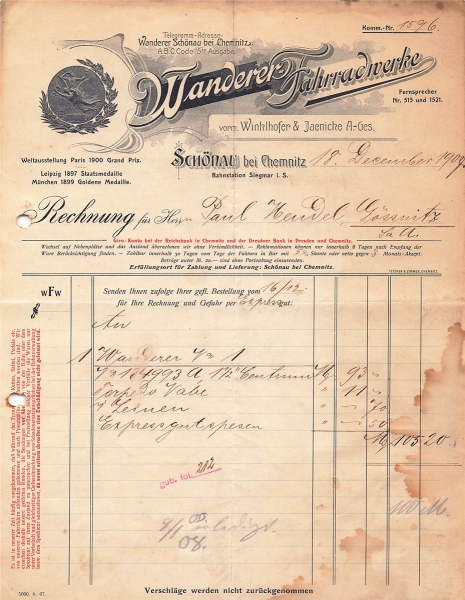 Komm.-Nr. 1596.
Telegramm-Adresse:
Wanderer Schönau bei Chemnitz.
A.B.C. Code 5te Ausgabe.
Wanderer-Fahrradwerke
Fernsprecher
Nr. 513 und 1521.
vorm. Winklhofer & Jaenicke A-Ges.
Weltausstellung Paris 1900 Grand Prix.
Leipzig 1897 Staatsmedaille
München 1899 Goldene Medaille.
Schönau bei Chemnitz 18. December 1907
Bahnstation Siegmar i. S.
Rechnung für Herrn Paul Hendel, Gössnitz
S/A.
Giro-Konto bei der Reichsbank in Chemnitz und der Dresdner Bank in Dresden und Chemnitz.
Wechsel auf Nebenplätze und das Ausland übernehmen wir ohne Verbindlichkeit. - Reklamationen können nur innerhalb 8 Tagen nach Empfang der
Ware Berücksichtigung finden. - Zahlbar innerhalb 30 Tagen vom Tage der Faktura in Bar mit 2% Skonto oder netto gegen 3 Monats-Akzept.
Beträge unter M. 20.- sind ohne Portoabzug einzusenden.
Erfüllungsort für Zahlung und Lieferung: Schönau bei Chemnitz.
WFW
Senden Ihnen zufolge Ihrer gefl. Bestellung vom 16/12
für Ihre Rechnung und Gefahr per Expressgut:
An
1 Wanderer No 1
No 184993 A 1½ Centrum M 93 "
Torpedo Nabe " 11 "
Leinen " " 70
Expressgutspesen " " 50
M 105 20
geb. fol. 212
100 M.
8/1 08. erledigt
08.
5000. 6. 07.
Verschläge werden nicht zurückgenommen